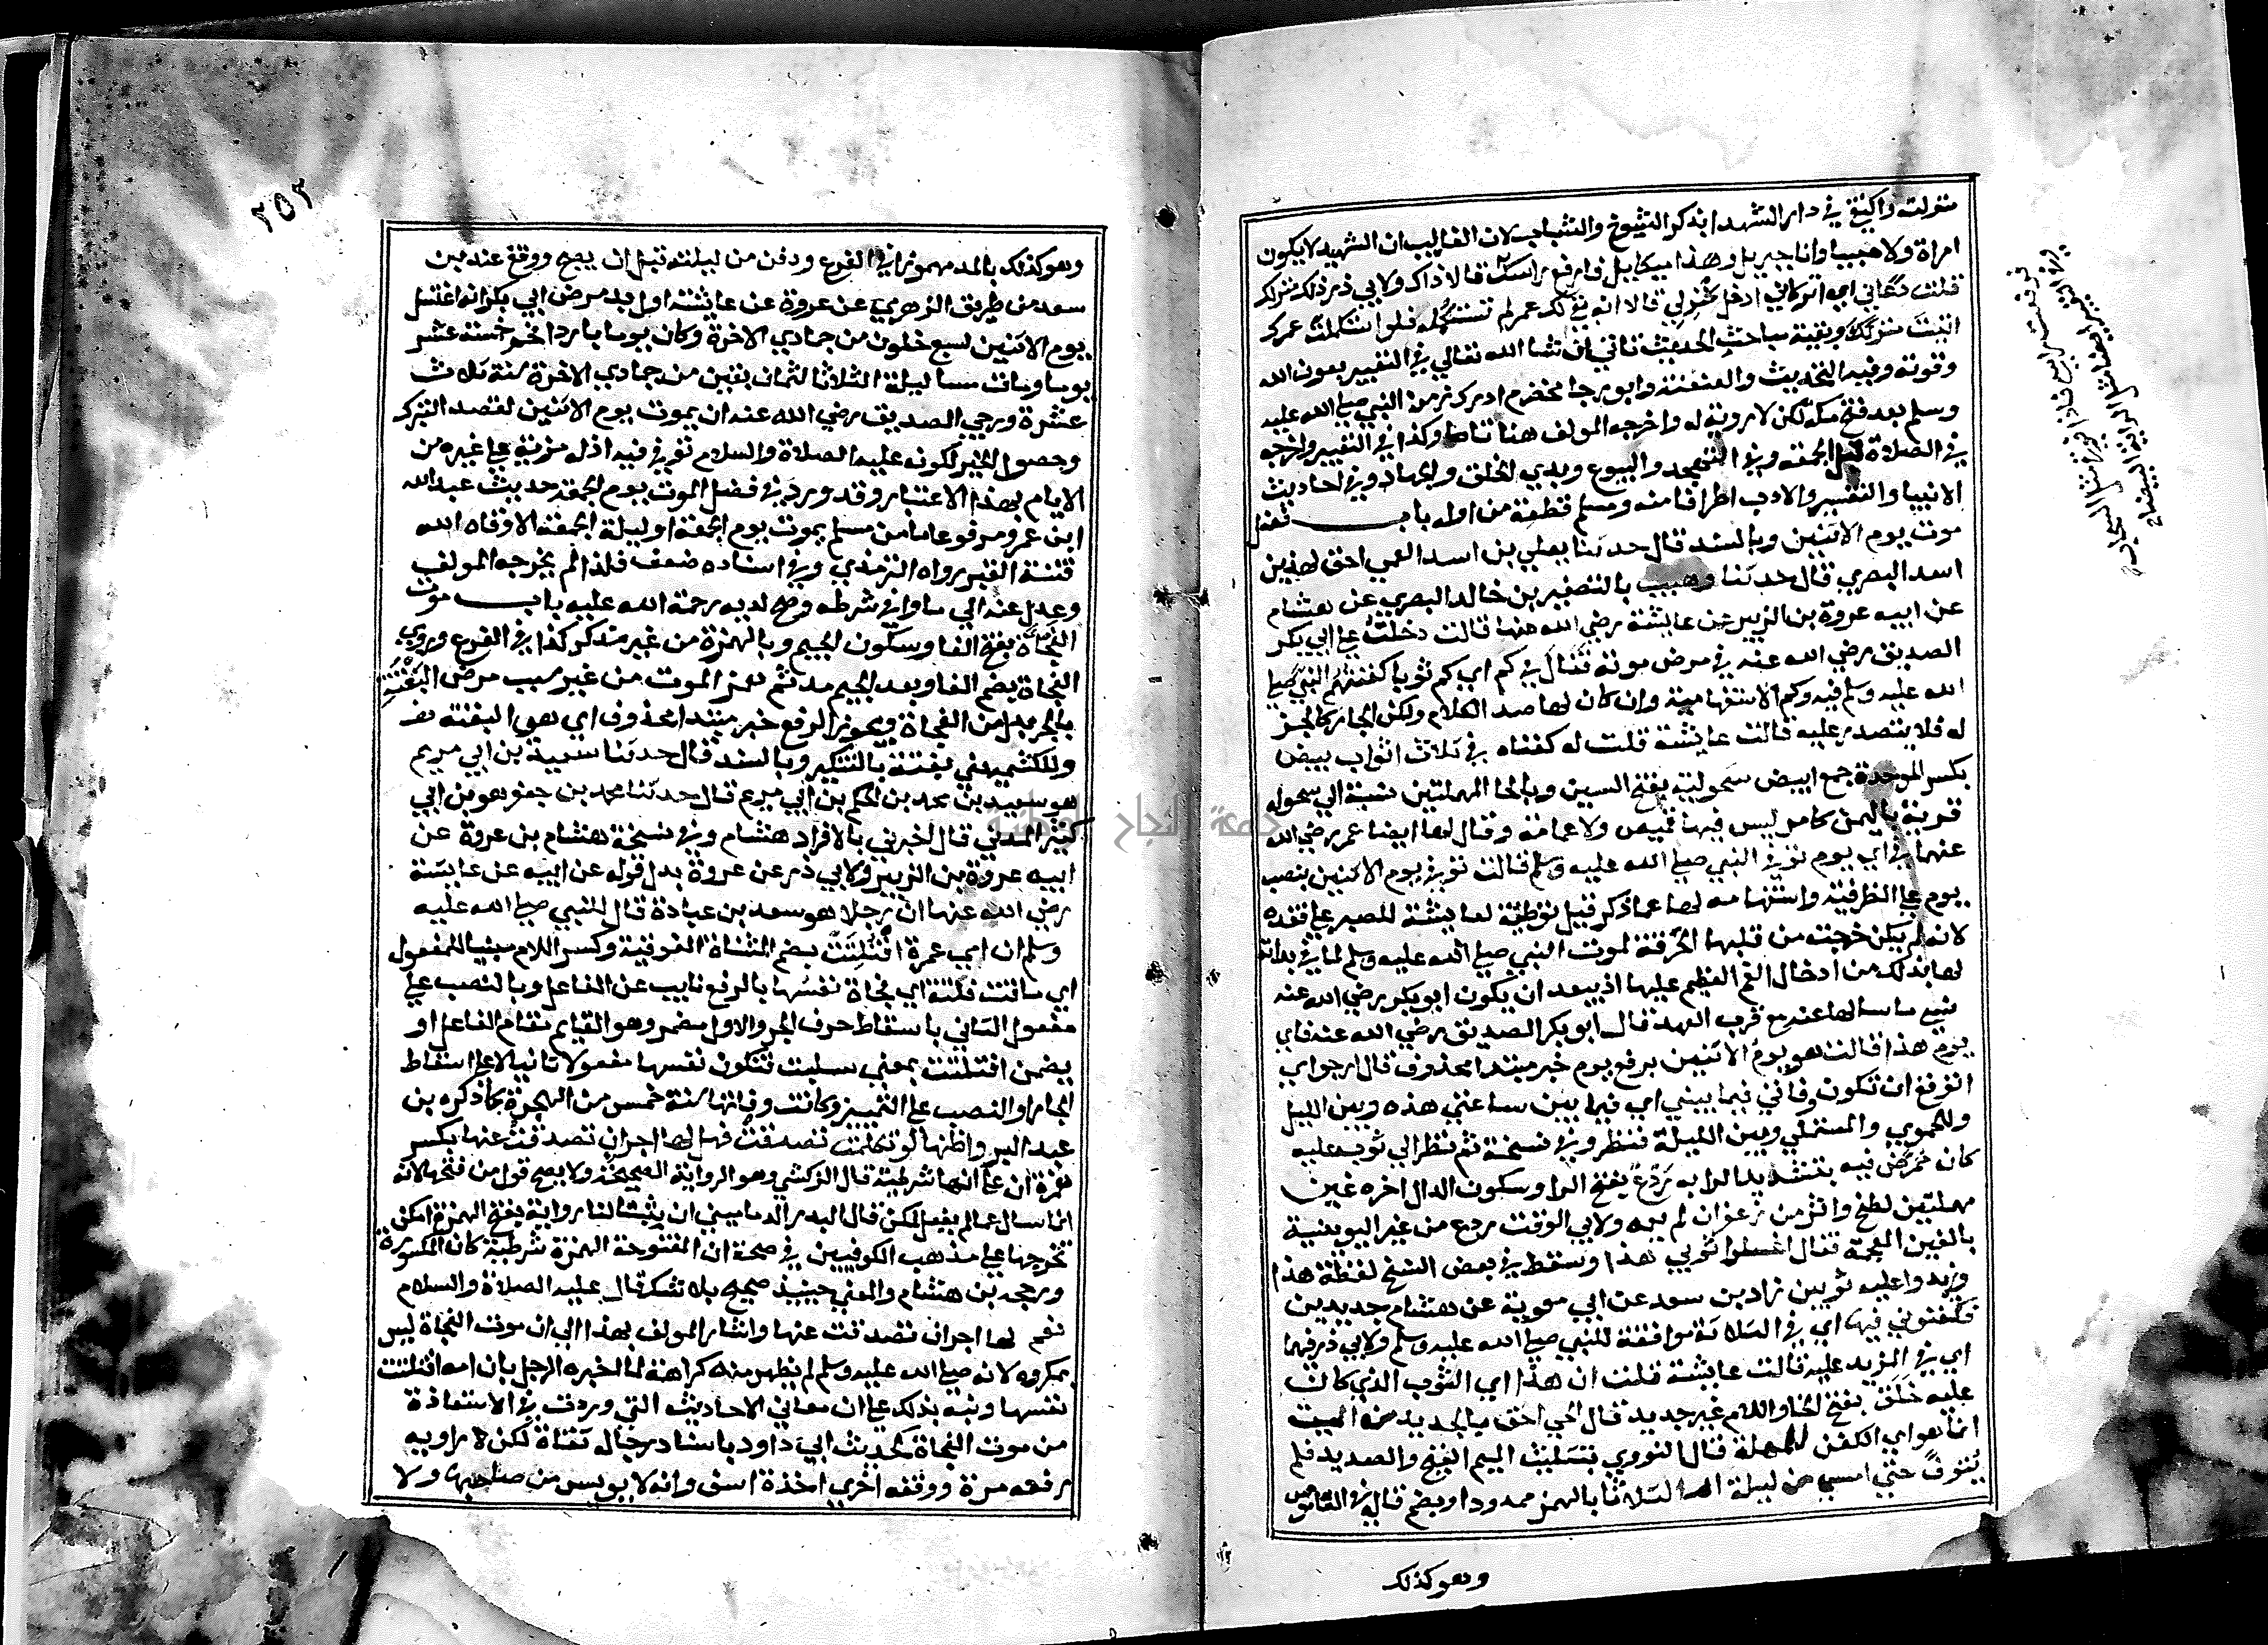 منزلت واكتفي في دار الشهدا بذكر الشيوخ والشباب لان الغالب ان الشهيد لا يكون
امراة ولا صبيا وانا جبريل وهذا ميكاييل فارفع راسك قالا ذاك ولابي ذر ذلك منزلك
قلت دعاني اي اتركاني ادخل منزلي قالا انه بقي لك عمر لم تستكمله فلو استكملت عمرك
اتيت منزلك وبقية مباحث الحديث تاتي ان شا الله تعالي في التعبير بعون الله
وقوته وفيه التحديث والعنعنة وابو رجا مخضرم ادرك زمن النبي صلي الله عليه
وسلم بعد فتح مكة لكن لا روية له واخرجه المولف هنا تاما وكذا في التعبير واخرجه
في الصلاة قبل الجمعة وفي التهجد والبيوع وبدي الخلق والجهاد وفي احاديث
الانبيا والتفسير والادب اطرافا منه ومسلم قطعة من اوله باب فضل
موت يوم الاثنين وبالسند قال حدثنا معلي بن اسد العمي اخو بهز بن
اسد البصري قال حدثنا وهيب بالتصغير بن خالد البصري عن هشام
عن ابيه عروة بن الزبير عن عايشة رضي الله عنها قالت دخلت علي ابي بكر
الصديق رضي الله عنه في مرض موته فقال في كم اي كم ثوبا كفنتم النبي صلي
الله عليه وسلم فيه وكم الاستفهامية وان كان لها صدر الكلام ولكن الجار كالجز
له فلا يتصدر عليه قالت عايشة قلت له كفناه في ثلاث اثواب بيض
بكسر الموحدة جمع ابيض سحولية بفتح السين وبالحا المهملتين نسبة الي سحول
قرية باليمن كامر ليس فيها قميص ولا عمامة وقال لها ايضا عمر رضي الله
عنهما في اي يوم توفي النبي صلي الله عليه وسلم قالت توفي يوم الاثنين بنصب
يوم علي الظرفية واستفهامه لها عما ذكر قيل توطية لعايشة للصبر علي فقده
لانه لم يكن خرجت من قلبها الحرقة لموت النبي صلي الله عليه وسلم لما في بداته
لها بذلك من ادخال الغم العظيم عليها اذ يبعد ان يكون ابو بكر رضي الله عنه
نسي ما سالها عنه مع قرب العهد قال ابو بكر الصديق رضي الله عنه فاي
يوم هذا قالت هو يوم الاثنين برفع يوم خبر مبتدا محذوف قال ارجو اي
اتوقع ان تكون وفاتي فيما بيني اي فيما بين ساعتي هذه وبين الليل
وللحموي والمستملي وبين الليلة فنظر وفي نسخة ثم نظر الي ثوب عليه
كان يمرض فيه بتشديد الرا به ردع بفتح الرا وسكون الدال اخره عين
مهملتين لطخ واثر من زعفران لم يعمه ولابي الوقت ردغ من غير اليونينية
بالغين المعجمة فقال اغسلوا ثوبي هذا وسقط في بعض النسخ لفظة هذا
وزيدوا عليه ثوبين زاد بن سعد عن ابي معوية عن هشام جديدين
فكفنوني فيها اي في الثلاثة موافقة للنبي صلي الله عليه وسلم ولابي ذر فيهما
اي في المزيد عليه قالت عايشة قلت ان هذا اي الثوب الذي كان
عليه خلق بفتح الخا واللام غير جديد قال الحي احق بالجديد من الميت
انما هو اي الكفن للمهلة قال النووي بتثليث الميم القيح والصديد فلم
يتوف حتي امسي من ليلة الثلاثا بالهمز ممدودا ويضم قال في القاموس
وهو كذلك
وهو كذلك بالمد مهموزا في الفرع ودفن من ليلته قبل ان يصبح ووقع عند بن
سعد من طريق الزهري عن عروة عن عايشة اول بدء مرض ابي بكر انه اغتسل
يوم الاثنين لسبع خلون من جمادي الاخرة وكان يوما باردا فحم خمسة عشر
يوما ومات مسا ليلة الثلاثا لثمان بقين من جمادي الاخرة سنة ثلاث
عشرة ورجي الصديق رضي الله عنه ان يموت يوم الاثنين لقصد التبرك
وحصول الخير لكونه عليه الصلاة والسلام توفي فيه اذ له مزية علي غيره من
الايام بهذا الاعتبار وقد ورد في فضل الموت يوم الجمعة حديث عبد الله
ابن عمرو مرفوعا ما من مسلم يموت يوم الجمعة او ليلة الجمعة الا وقاه الله
فتنة القبر رواه الترمذي وفي اسناده ضعف فلذا لم يخرجه المولف
وعدل عنه الي ما وافق شرطه وصح لديه رحمة الله عليه باب موت
الفجاة بفتح الفا وسكون الجيم وبالهمزة من غير مد كر كذا في الفرع وروي
الفجاة بضم الفا وبعد الجيم مد ثم همز الموت من غير سبب مرض البغتة
بالجر بدل من الفجاة ويجوز الرفع خبر مبتدا محذوف اي هي البغتة
وللكشميهني بغتة بالتنكير وبالسند قال حدثنا سعيد بن ابي مريم
هو سعيد بن محمد بن الحكم بن ابي مريم قال حدثنا محمد بن جعفر هو بن ابي
كثير المدني قال اخبرني بالافراد هشام وفي نسخة هشام بن عروة عن
ابيه عروة بن الزبير ولابي ذر عن عروة بدل قوله عن ابيه عن عايشة
رضي الله عنها ان رجلا هو سعد بن عبادة قال للنبي صلي الله عليه
وسلم ان امي عمرة افتلتت بضم المثناة الفوقية وكسر اللام مبنيا للمفعول
اي ماتت فلتة اي فجاة نفسها بالرفع نايب عن الفاعل وبالنصب علي
مفعول الثاني باسقاط حرف الجر والاول مضمر وهو القايم مقام الفاعل او
يضمن افتلتت بمعني سلبت فتكون نفسها مفعولا ثانيا لا علي اسقاط
الجار او النصب علي التمييز وكانت وفاتها سنة خمس من الهجرة كما ذكره بن
عبد البر واظنها لو تكلمت تصدقت فهل لها اجر ان تصدقت عنها بكسر
همزة ان علي انها شرطية قال الزركشي وهو الرواية الصحيحة ولا يصح قول من فتحها لانه
انما سال عما لم يفعل لكن قال البدر الدماميني ان ثبتت لنا رواية بفتح الهمزة امكن
تخريجها علي مذهب الكوفيين في صحة ان المفتوحة الهمزة شرطية كان المكسورة
ورجحه بن هشام والمعني حينيذ صحيح بلا شك قال عليه الصلاة والسلام
نعم لها اجر ان تصدقت عنها واشار المولف بهذا الي ان موت الفجاة ليس
بمكروه لانه صلي الله عليه وسلم لم يظهر منه كراهة لما اخبره الرجل بان امه افتلتت
نفسها ونبه بذلك علي ان معاني الاحاديث التي وردت في الاستعاذة
من موت الفجاة كحديث ابي داود باسناد رجاله ثقاة لكن راويه
رفعه مرة ووقفه اخري اخذة اسف وانه لا يويس من صاحبها ولا
٢٥٢
جامعة النجاح الوطنية